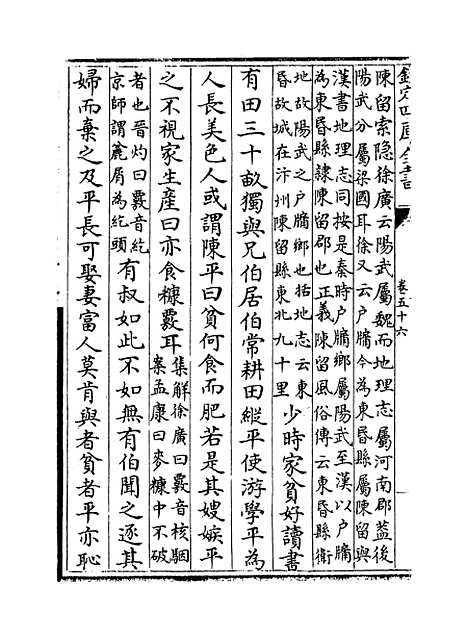 欽定四庫全書
卷五十六
陳留索隐徐廣云陽武屬魏而地理志屬河南郡蓋後
陽武分屬梁國耳徐又云戶牖今為東昬縣屬陳留與
漢書地理志同按是秦時戶牖鄉屬陽武至漢以戶牖
為東昬縣隸陳留郡也正義陳留風俗傳云東昬縣衛
地故陽武之戶牖鄉也括地志云東
昬故城在汴州陳留縣東北九十里少時家貧好讀書
有田三十畝獨與兄伯居伯常耕田縱平使游學平為
人長美色人或謂陳平曰貧何食而肥若是其嫂嫉平
之不視家生產曰亦食糠覈耳集解徐廣曰覈音核駰
案孟康曰麥糠中不破
者也晋灼曰覈音紇
京師謂麄屑為紇頭有叔如此不如無有伯聞之逐其
婦而棄之及平長可娶妻富人莫肯與者貧者平亦恥